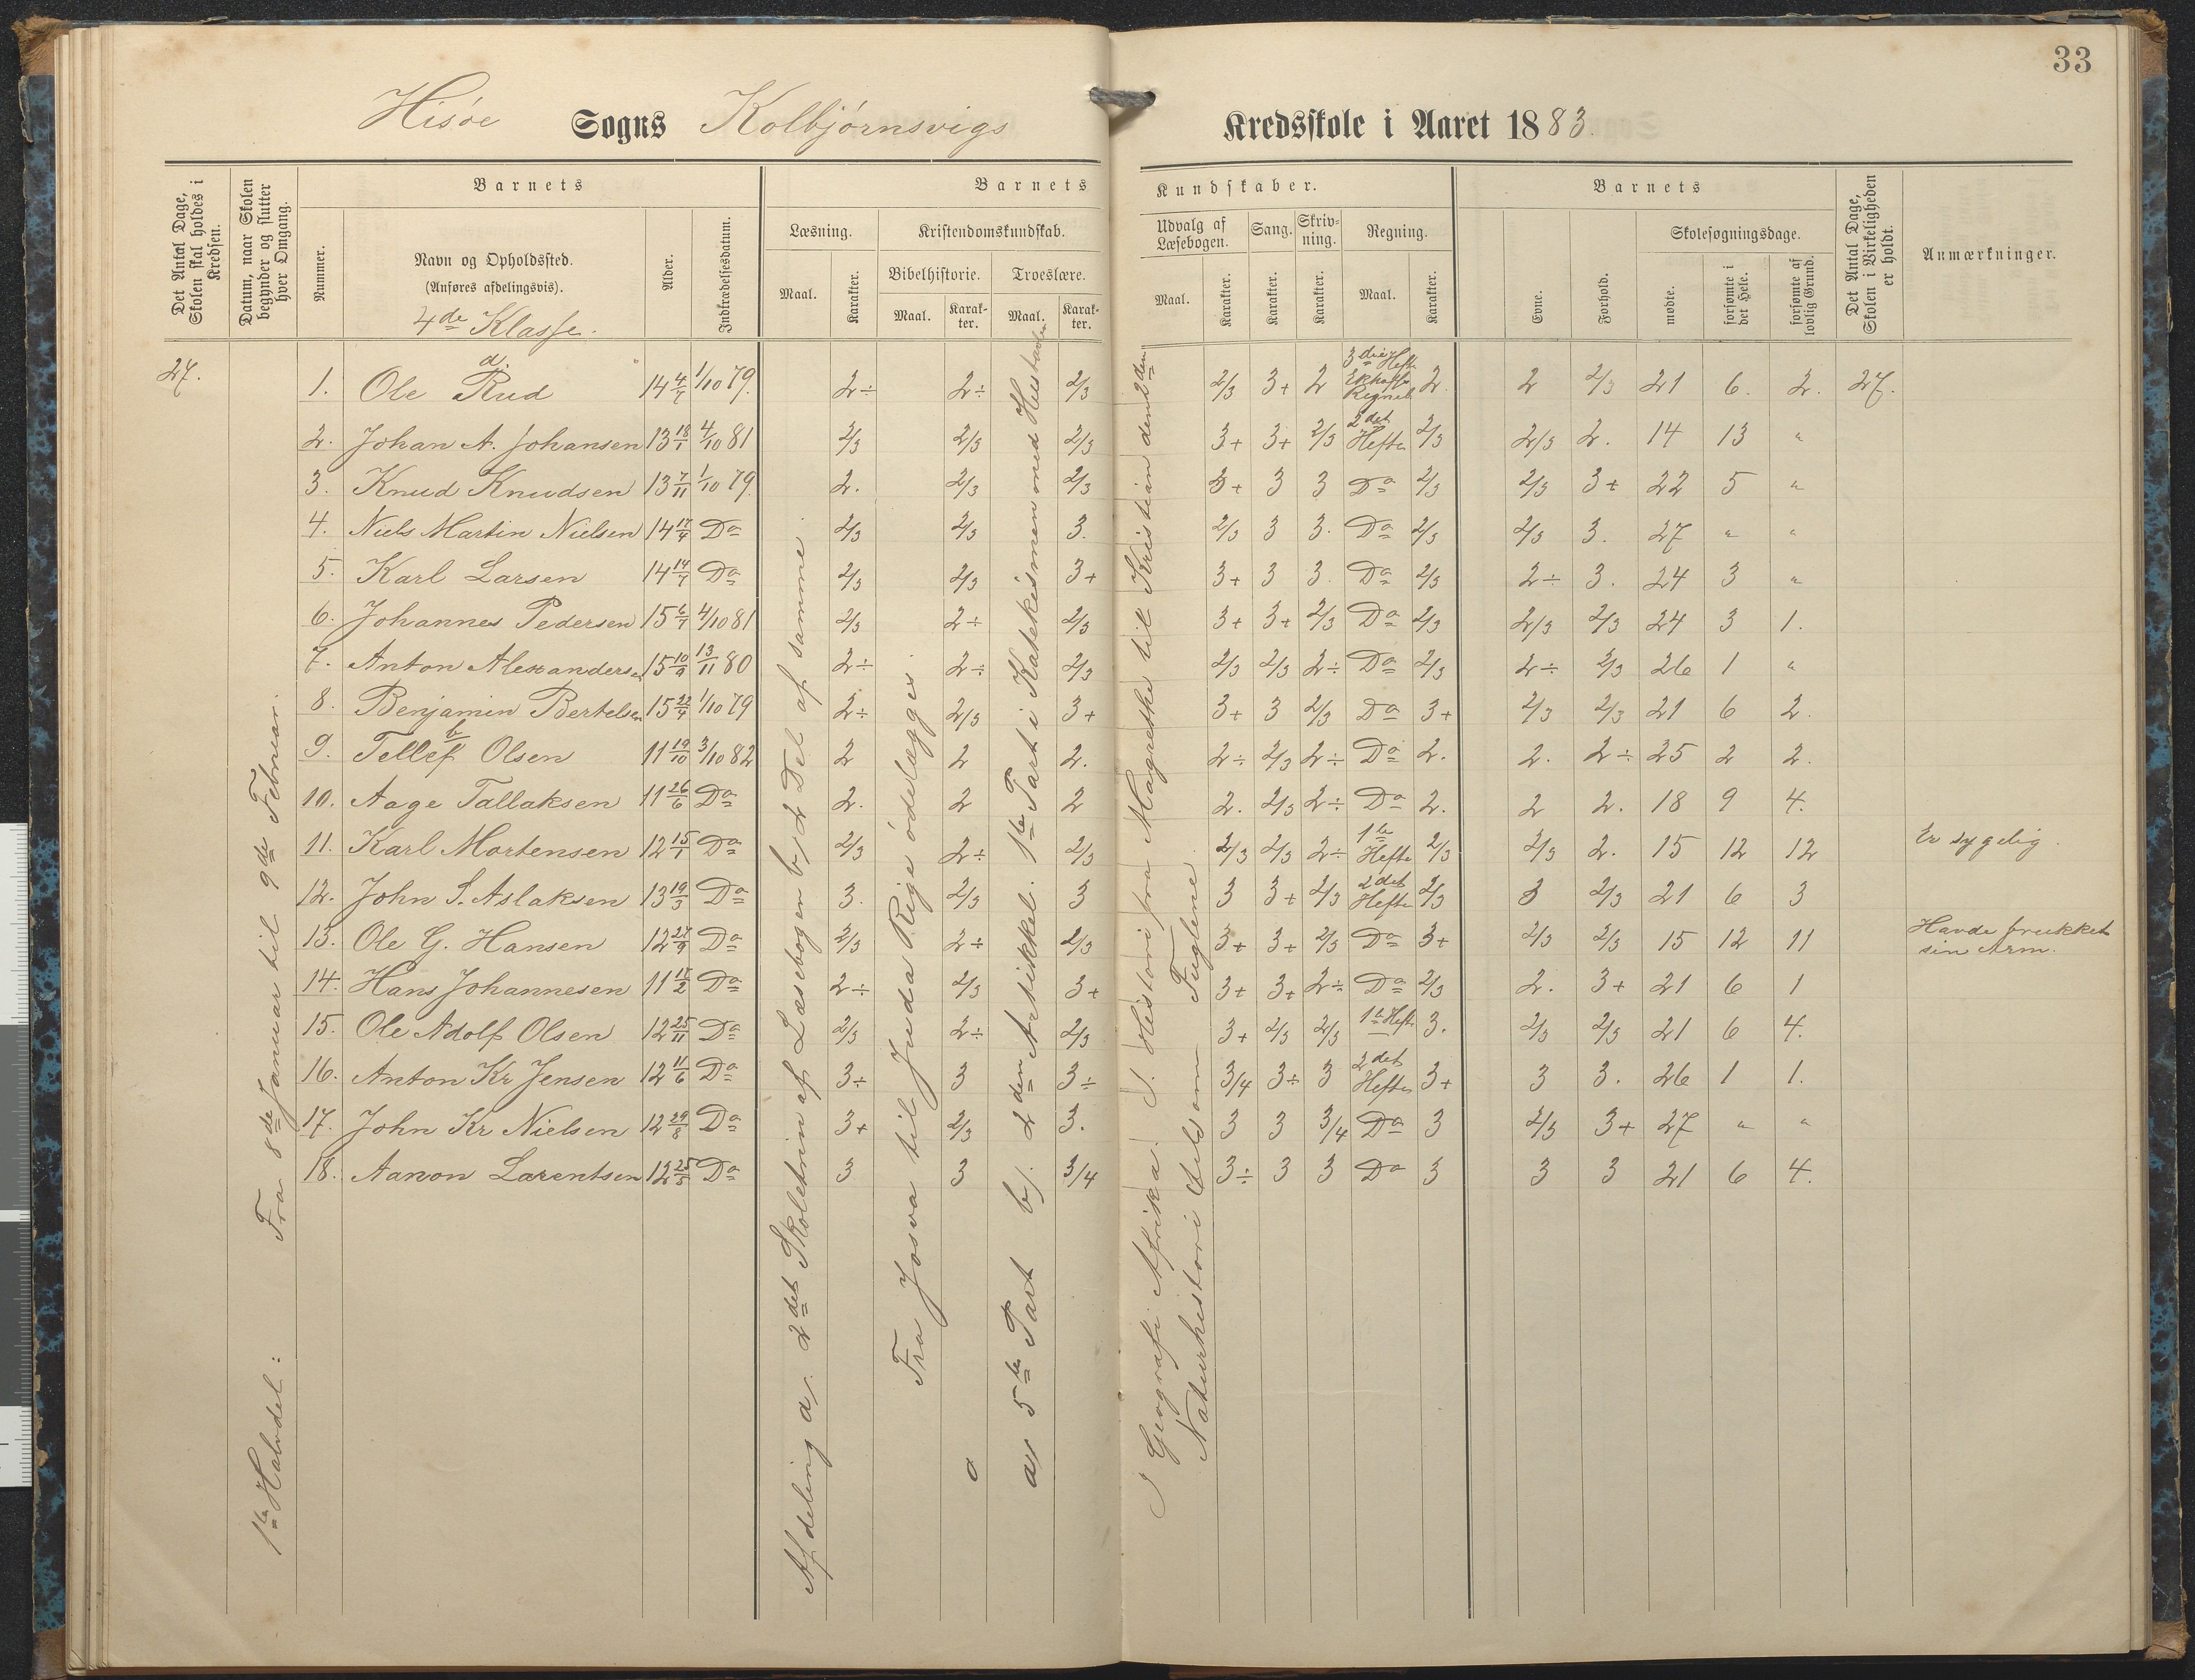 33
Hisøe Sogns Kolbjørnsvigs Kredsskole i Aaret 1883.
Det Antal Dage, Skolen skal holdes i Kredsen.
Datum, naar Skolen begynder og slutter hver Omgang.
Barnets
Nummer.
Navn og Opholdssted.
(Anføres afdelingsvis).
4de Klasse.
Alder.
Indtrædelsesdatum.
Barnets Kundskaber.
Læsning.
Maal.
Karakter.
Kristendomskundskab.
Bibelhistorie.
Maal.
Karakter.
Troeslære.
Maal.
Karakter.
Udvalg af Læsebogen.
Maal.
Karakter.
Sang.
Karakter.
Skrivning.
Karakter.
Regning.
Maal.
Karakter.
Barnets
Evne.
Forhold.
Skolesøgningsdage.
mødte.
forsømte i det Hele.
forsømte af lovlig Grund.
Det Antal Dage, Skolen i Virkeligheden er holdt.
Anmærkninger.
27.
1ste Halvdel: Fra 8de Januar til 9de Februar.
Afdeling a. 2det Skoletrin af Læsebogen b, 2 Del af samme.
a Fra Josva til Juda Rige ødelægges.
a, 5te Part b). 2den Artikkel. 1ste Part i Katekismen med Hustavlen
I Geografi Afrika. I. Historie fra Magrethe til Kristian dend 2den
Naturhistori Fuglene
a.
1. Ole Rud 14 4/7 1/10 79. 2÷ 2÷ 2/3 2/3 3+ 2 3die Hefte 2. 2 2/3 21 6. 2. 27.
2. Johan A. Johansen 13 18/1 4/10 81 2/3 2/3 2/3 3+ 3+ 2/3 2det Hefte 2/3 2/3 2. 14 13 "
3. Knud Knudsen 13 7/11 1/10 79. 2. 2/3 2/3 3+ 3 3 Do 2/3 2/3 3+ 22 5 "
4. Niels Martin Nielsen 14 17/4 Do 2/3 2/3 3. 2/3 3 3. Do 2/3 2/3 3. 27 " "
5. Karl Larsen 14 14/7 Do 2/3 2/3 3+ 3+ 3 3. Do 2/3 2÷ 3. 24 3 "
6. Johannes Pedersen 15 6/7 4/10 81 2/3 2÷ 2/3 3+ 3+ 2/3 Do 2/3 2/3 2/3 24 3 1.
7. Anton Alexandersen 15 10/9 13/11 80 2÷ 2÷ 2/3 2/3 2/3 2÷ Do 2/3 2÷ 2/3 26 1 "
8. Benjamin Bertelsen 15 22/4 1/10 79 2÷ 2/3 3+ 3+ 3 2/3 Do 3+ 2/3 2/3 21 6 2.
b
9. Tellef Olsen 11 19/10 3/10 82 2 2 2. 2÷ 2/3 2÷ Do 2. 2. 2÷ 25 2 2.
10. Aage Tallaksen 11 26/6 Do 2. 2 2 2. 2/3 2÷ Do 2. 2 2. 18 9 4.
11. Karl Mortensen 12 15/1 Do 2/3 2÷ 2/3 2/3 2/3 2÷ 1te Hefte 2/3 2/3 2. 15 12 12 Er sygelig.
12. John S. Aslaksen 13 19/3 Do 3. 2/3 3 3 3+ 2/3 2det Hefte 2/3 3 2/3 21 6 3
13. Ole G. Hansen 12 27/9 Do 2/3 2÷ 2/3 3+ 3+ 2/3 Do 3+ 2/3 2/3 15 12 11 Havde brukket sin Arm.
14. Hans Johannesen 11 17/2 Do 2÷ 2/3 3+ 3+ 3+ 2÷ Do 2/3 2. 3+ 21 6 1
15. Ole Adolf Olsen 12 25/11 Do 2/3 2÷ 2/3 3+ 2/3 2/3 1te Hefte 3. 2/3 2/3 21 6 4.
16. Anton Kr Jensen 12 11/6 Do 3÷ 3 3÷ 3/4 3÷ 3 2det Hefte 3+ 3 3. 26 1 1.
17. John Kr Nielsen 12 29/8 Do 3+ 2/3 3. 3 3 3/4 Do 3 2/3 3+ 27 " "
18. Aanon Larentsen 12 25/5 Do 3 3 3/4 3÷ 3 3 Do 3 3 3 21 6 4.